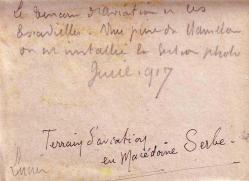 Le terrain d'aviation et les
Escadrilles. Vue prise du Mamelon
où est installée la Section photo
Juill. 1917
Terrain d'aviation
en Macédoine Serbe.